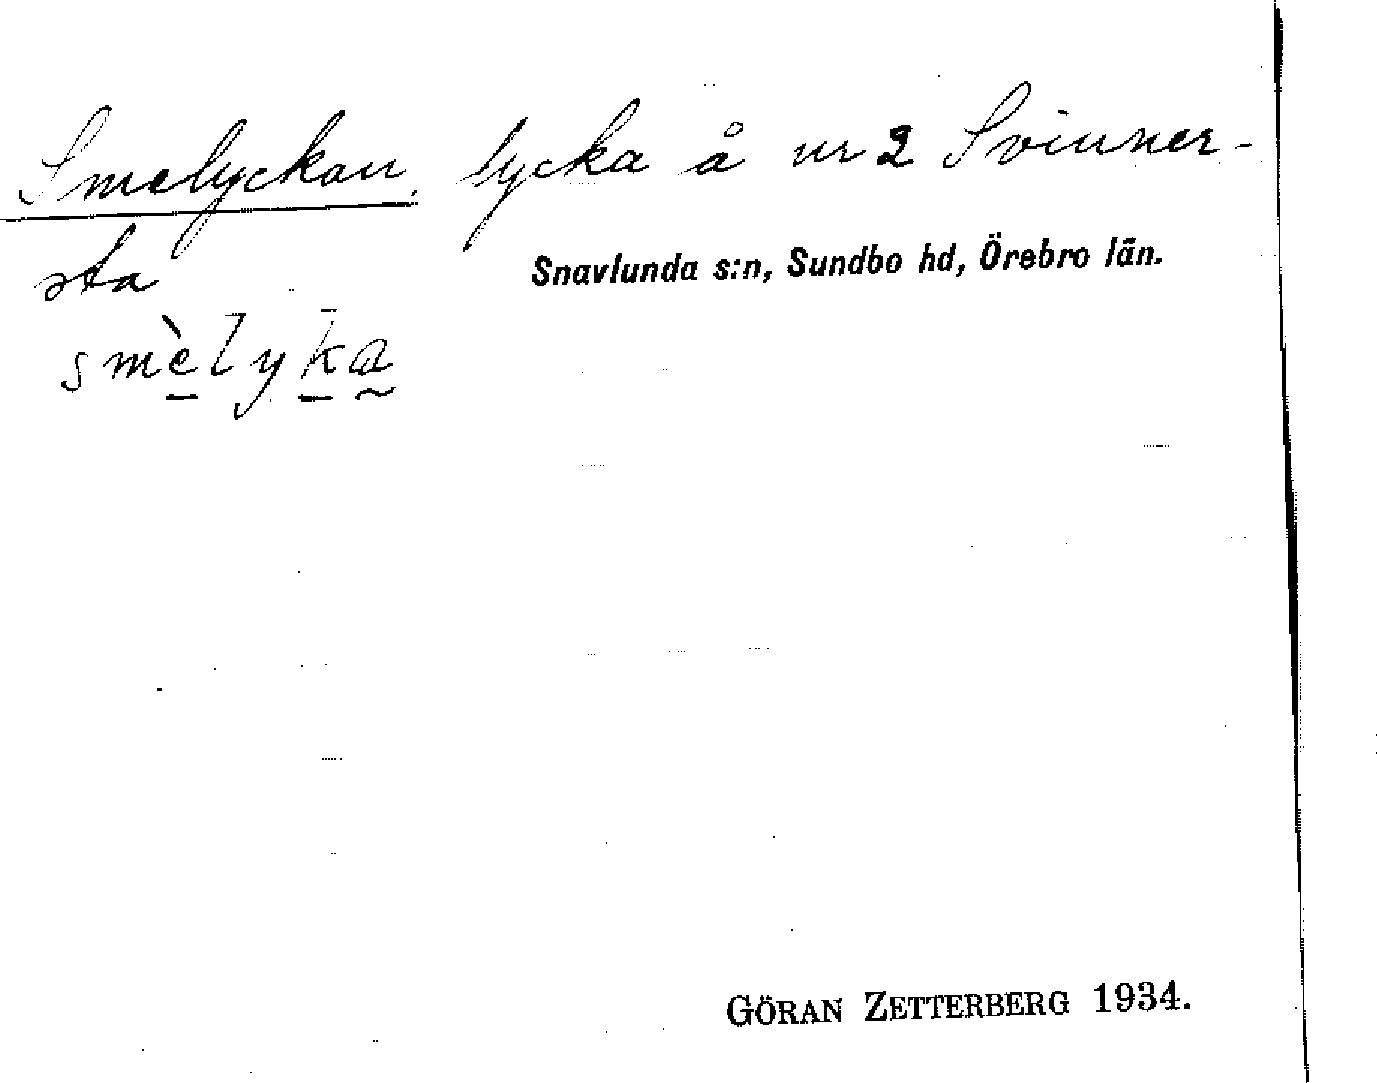 Smelyckan, lycka å nr 2 Svinner-
sta
Snavlunda s:n, Sundbo hd, Örebro län.
smèlyka
GÖRAN ZETTERBERG 1934.